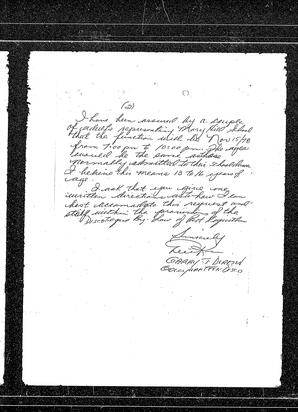 (2)
I have been assured by a couple
of adults representing Mary Hill School
that the function will be Nov 15/78
from 7:00 pm to 10:00 pm. The ages
would be the same as those
normally admitted to this School
I believe this means 13 to 16 years of
age.
I ask that you give me
written direction as to how I can
best accomodate this request and
still within the of the
Discotheque By-Law of Port Coquitlam
Sincerely